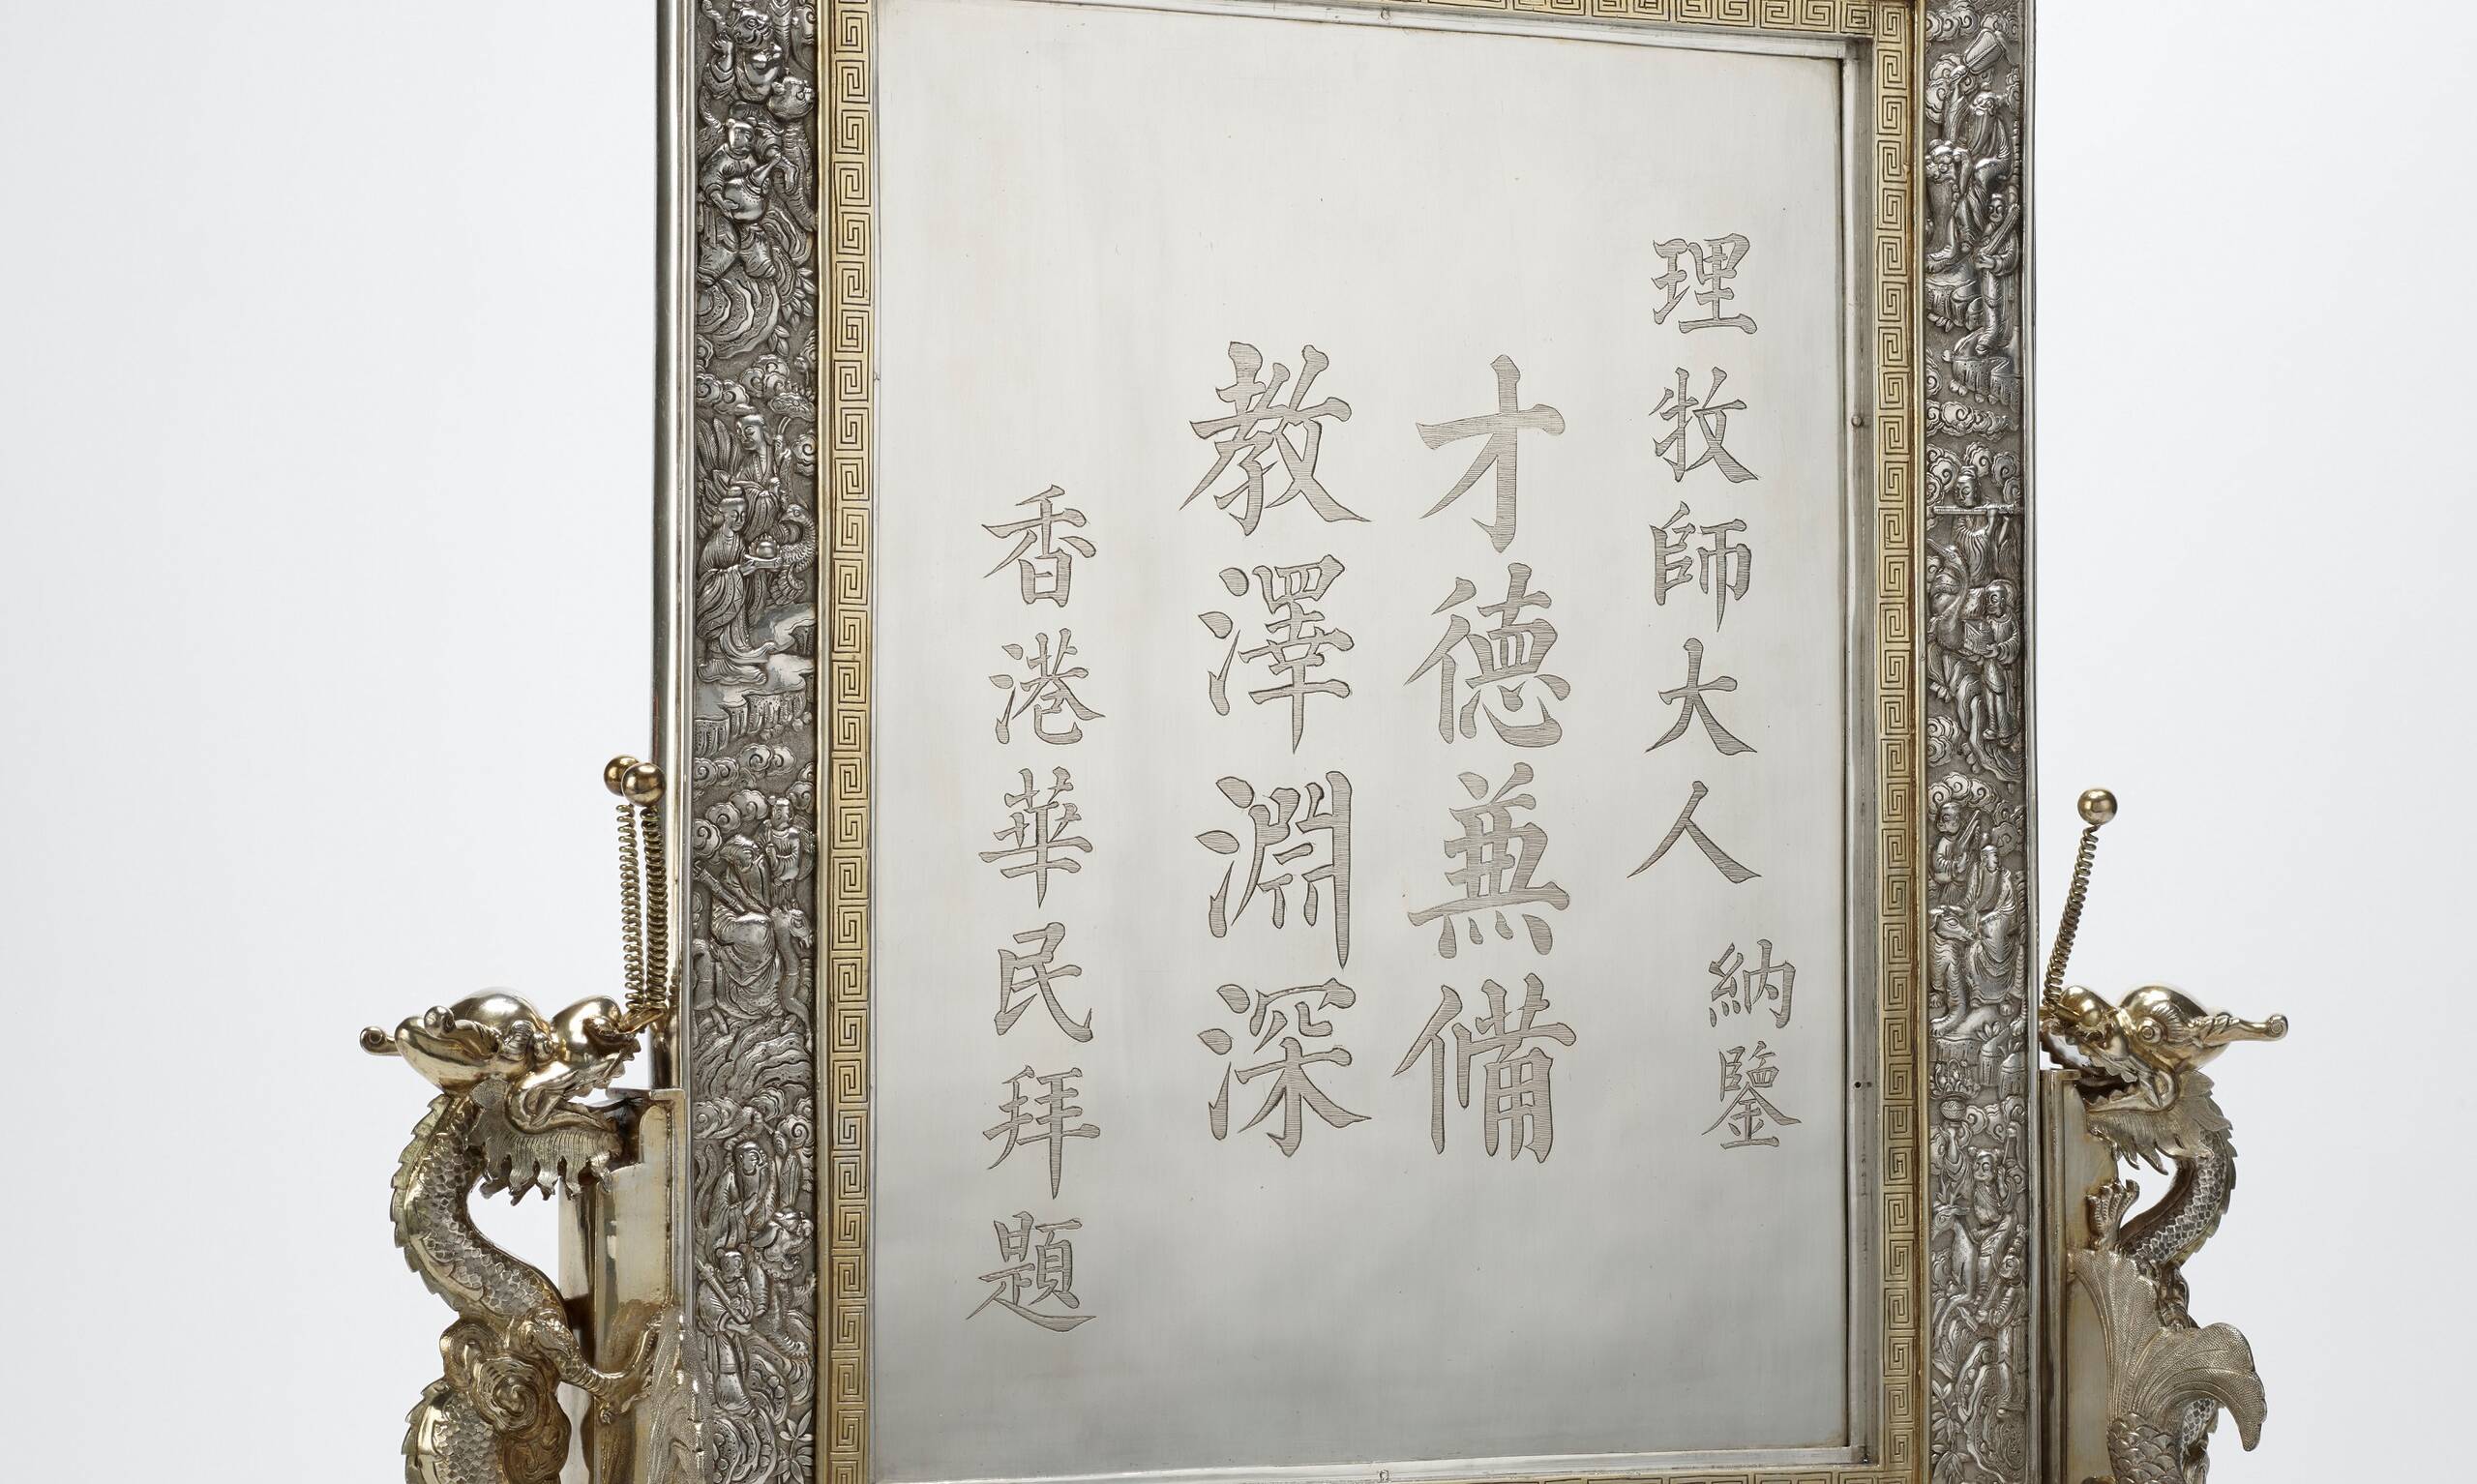 理牧師大人
納鑒
才德兼備
教澤淵深
香港華民拜題